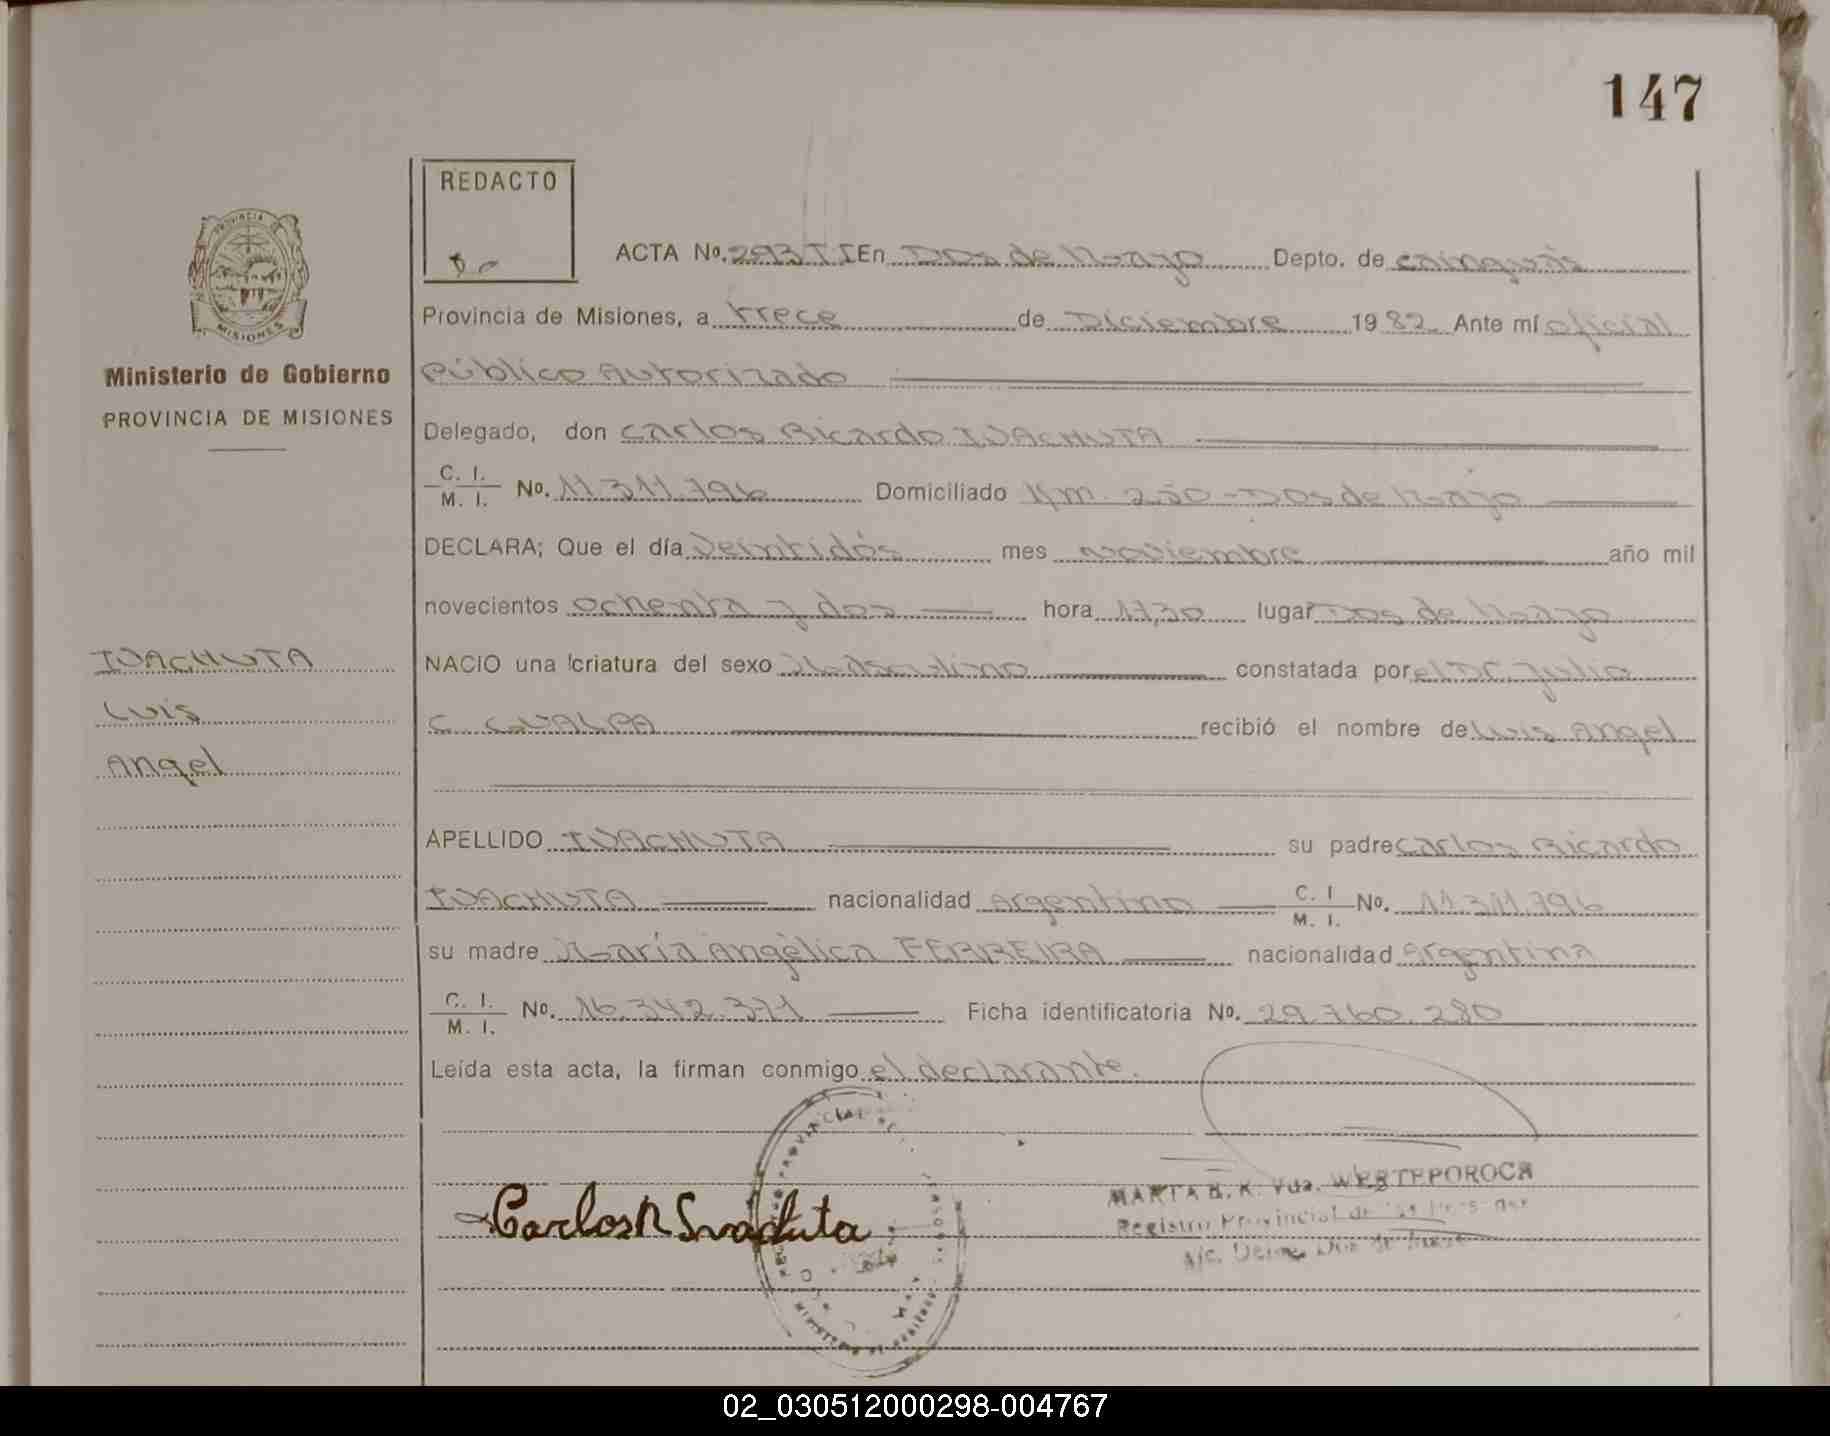 147
REDACTO
PROVINCIA
MISIONES
Ministerio de Gobierno
PROVINCIA DE MISIONES
ACTA No. 293 TI En Dos de Mayo Depto. de Cainguás
Provincia de Misiones, a trece de Diciembre 1982 Ante mí oficial
Público Autorizado
Delegado, don Carlos Ricardo IVACHUTA
C. I.
M. I. No. 11.311.796 Domiciliado Km. 250 - Dos de Mayo
DECLARA; Que el día veintidós mes noviembre año mil
novecientos ochenta y dos hora 17,30 lugar Dos de Mayo
NACIO una criatura del sexo Masculino constatada por el Dr. Julio
C. GUALPA recibió el nombre de Luis Angel
IVACHUTA
Luis
Angel
APELLIDO IVACHUTA su padre Carlos Ricardo
IVACHUTA nacionalidad Argentino C. I
M. I. No. 11.311.796
su madre María Angélica FERREIRA nacionalidad Argentina
C. I.
M. I. No. 16.342.371 Ficha identificatoria No. 29.760.280
Leída esta acta, la firman conmigo el declarante.
Carlos R Ivachuta
MARTA H. K. Vda. WESTEPOROCH
Registro Provincial de
02_030512000298-004767